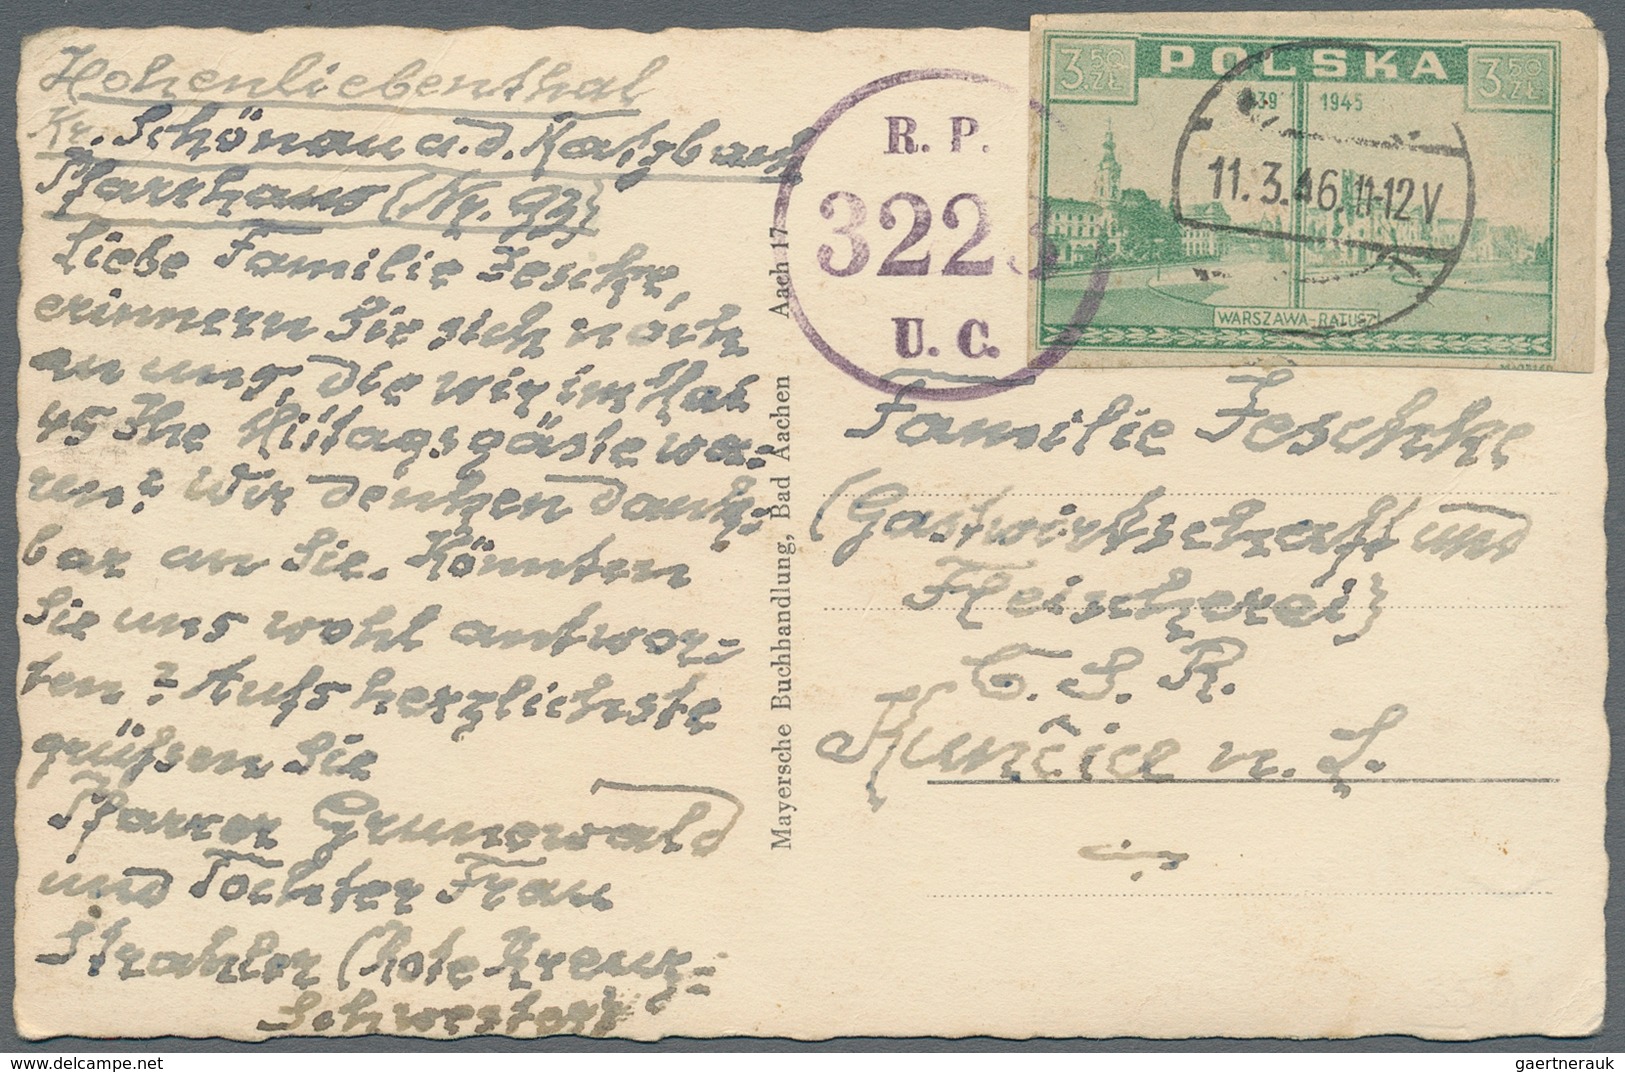 Hohenliebenthal
Kr. Schönau a. d. Katzbach
Pfarrhaus (Nr. 93)
Liebe Familie Jeschke,
erinnern Sie sich noch
an uns, die wir im Mai
45 Ihre Mittagsgäste wa-
ren? Wir denken dank-
bar an Sie. Könnten
Sie uns wohl antwor-
ten? Aufs herzlichste
grüßen Sie
Pfarrer Grunewald
und Tochter Frau
Strahler (Rote Kreuz-
Schwester)
Mayersche Buchhandlung, Bad Aachen Aach 17
R. P.
3223
U. C.
POLSKA
3.50 ZŁ.
3.50 ZŁ.
939 1945
11.3.46.11-12V
WARSZAWA-RATUSZ
Familie Jeschke
(Gastwirtschaft und
Fleischerei)
Č. S. R.
Kunčice n. L.
gaertnerauk